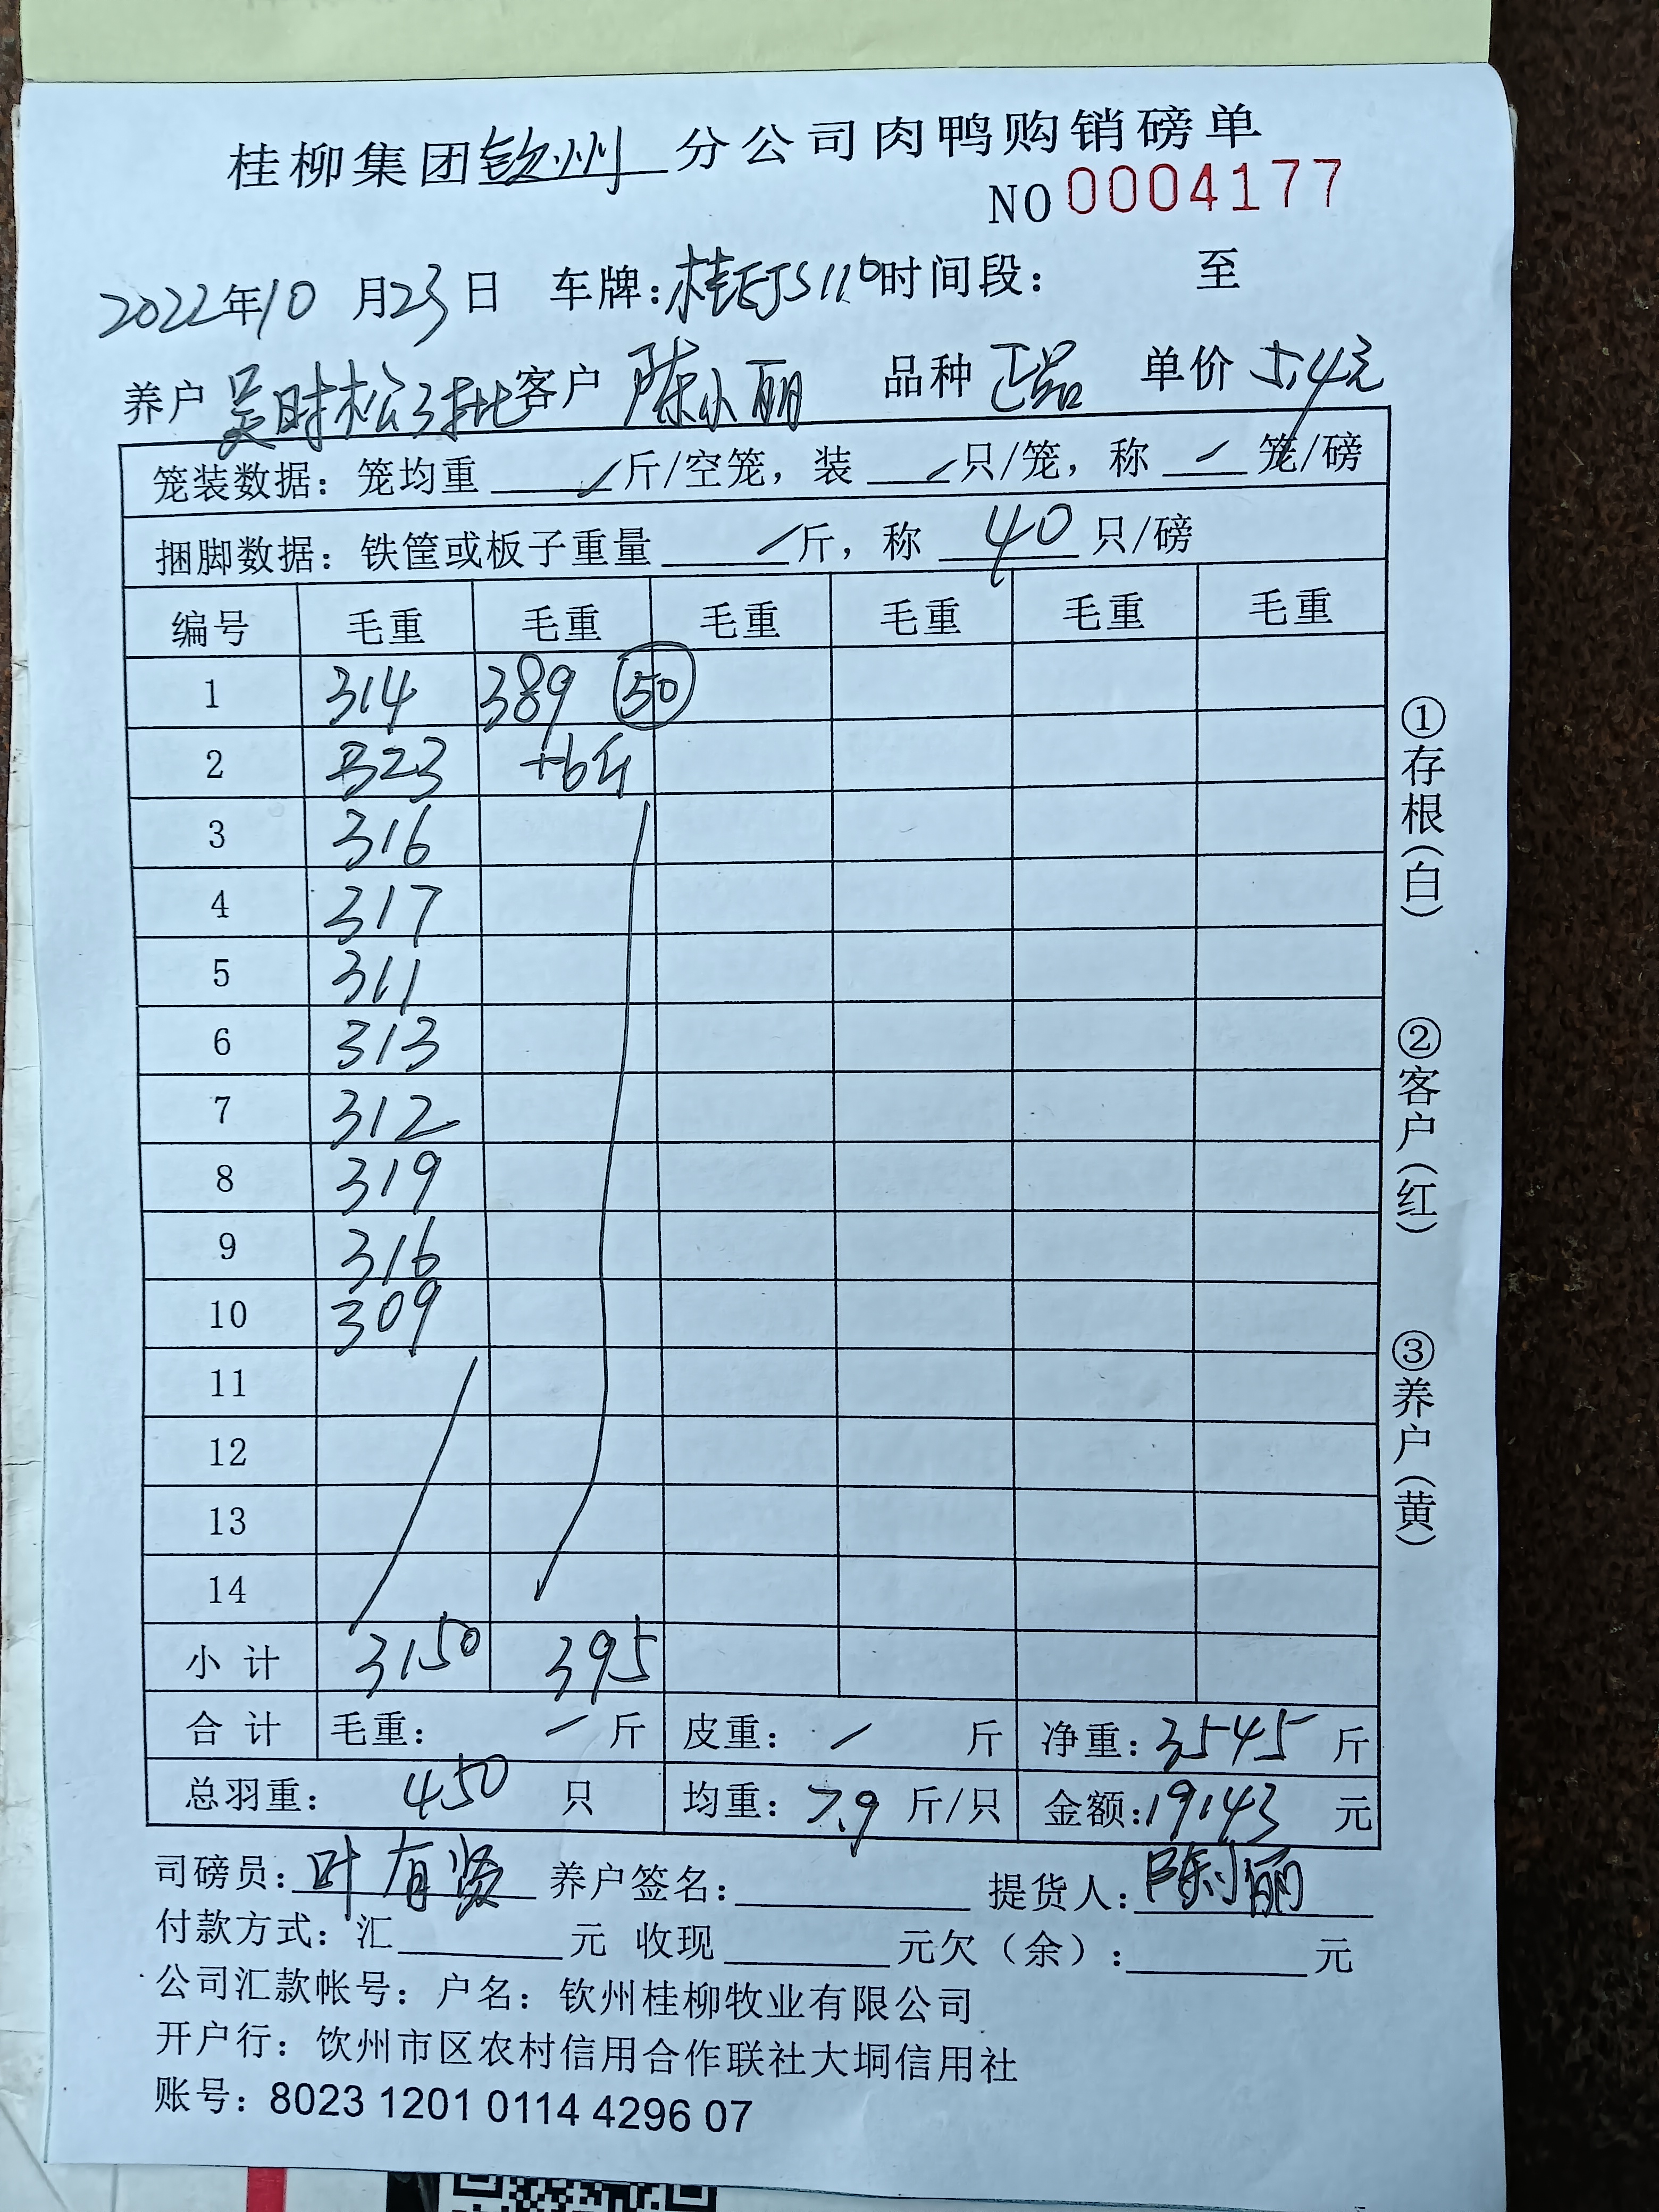 桂柳集团钦州分公司肉鸭购销磅单
NO 0004177
2022年10月23日 车牌:桂EJS110时间段: 至
养户 吴时松3批 客户 陈小丽 品种 正品 单价 5.4元
笼装数据: 笼均重 / 斤/空笼, 装 / 只/笼, 称 / 笼/磅
捆脚数据: 铁筐或板子重量 / 斤, 称 40 只/磅
编号 毛重 毛重 毛重 毛重 毛重 毛重
1 314 389 50
2 323 +6斤
3 316
4 317
5 311
6 313
7 312
8 319
9 316
10 309
11
12
13
14
小计 3150 395
合计 毛重: / 斤 皮重: / 斤 净重: 3545 斤
总羽重: 450 只 均重: 7.9 斤/只 金额: 19143 元
司磅员: 叶有贤 养户签名: 提货人: 陈小丽
付款方式: 汇 元 收现 元欠(余): 元
公司汇款帐号: 户名: 钦州桂柳牧业有限公司
开户行: 钦州市区农村信用合作联社大垌信用社
账号: 8023 1201 0114 4296 07
①存根(白)
②客户(红)
③养户(黄)